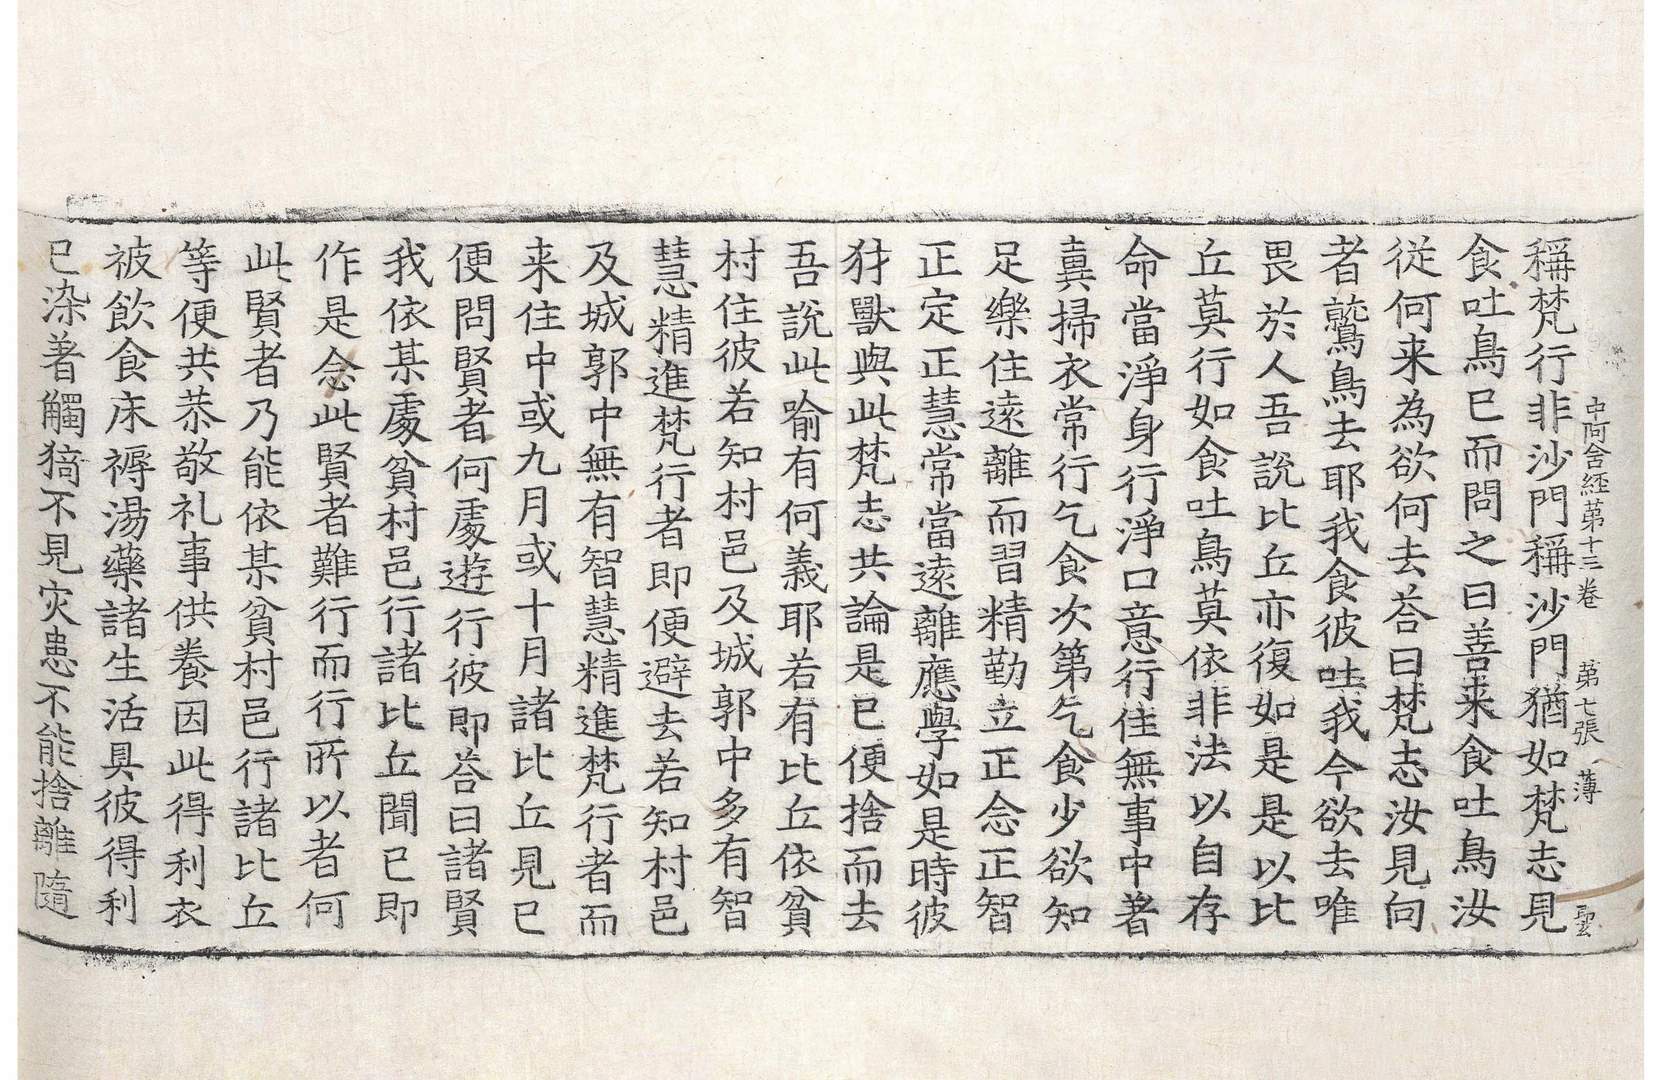 中阿含経苐十三卷 苐七張 薄 雲
稱梵行非沙門稱沙門猶如梵志見
食吐鳥已而問之曰善来食吐鳥汝
從何来為欲何去荅曰梵志汝見向
者鷲鳥去耶我食彼吐我今欲去唯
畏於人吾說比丘亦復如是是以比
丘莫行如食吐鳥莫依非法以自存
命當淨身行淨口意行住無事中著
糞掃衣常行乞食次第乞食少欲知
足樂住遠離而習精勤立正念正智
正定正慧常當遠離應學如是時彼
犲獸與此梵志共論是已便捨而去
吾說此喻有何義耶若有比丘依貧
村住彼若知村邑及城郭中多有智
慧精進梵行者即便避去若知村邑
及城郭中無有智慧精進梵行者而
来住中或九月或十月諸比丘見已
便問賢者何處遊行彼即荅曰諸賢
我依某處貧村邑行諸比丘聞已即
作是念此賢者難行而行所以者何
此賢者乃能依某貧村邑行諸比丘
等便共恭敬礼事供養因此得利衣
被飲食床褥湯藥諸生活具彼得利
已染著觸猗不見灾患不能捨離隨